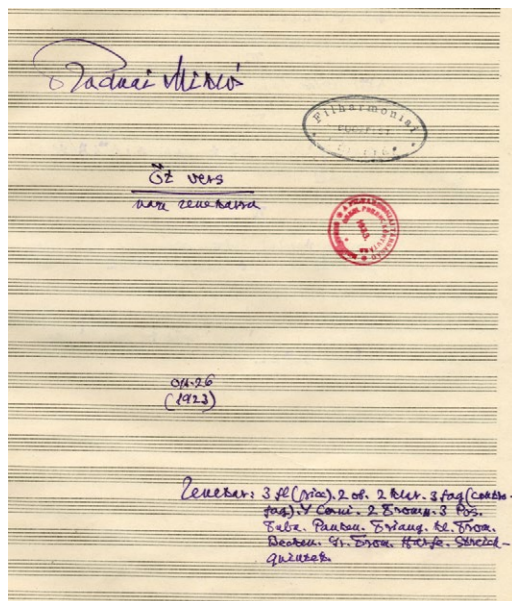 Radnai Miklós
Filharmóniai
Öt vers
nagy zenekarra
A FILHARMÓNIAI TÁRSASÁG
op. 26
(1923)
Zenekar: 3 fl (picc). 2 ob. 2 klar. 3 fag (contra-
fag). 4 Corni. 2 Tromp. 3 Pos.
Tuba. Pauken. Triang. kl. Trom.
Becken. Gr. Trom. Harfe. Streich-
quintett.